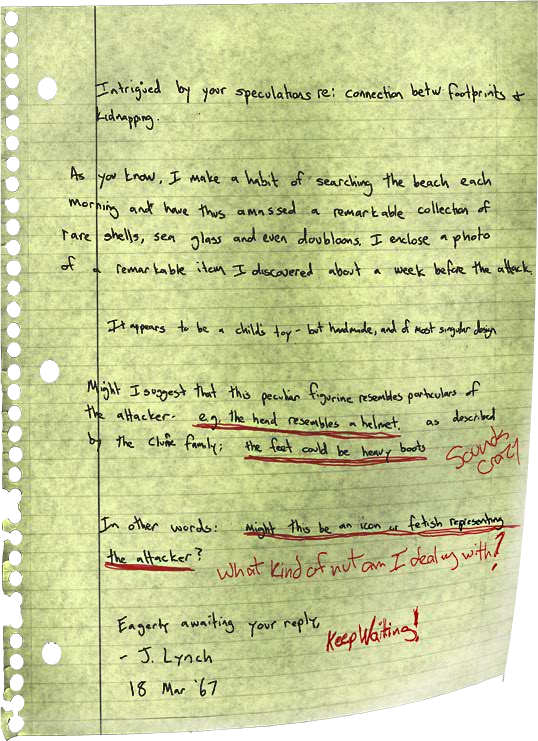 Intrigued by your speculations re: connection betw footprints +
kidnapping.
As you know, I make a habit of searching the beach each
morning and have thus amassed a remarkable collection of
rare shells, sea glass and even doubloons. I enclose a photo
of a remarkable item I discovered about a week before the attack.
It appears to be a child's toy - but handmade, and of most singular design
Might I suggest that this peculiar figurine resembles particulars of
the attacker. e.g. the head resembles a helmet. as described
by the Clune family; the feet could be heavy boots
Sounds
crazy
In other words: might this be an icon or fetish representing
the attacker?
What kind of nut am I dealing with?
Eagerly awaiting your reply,
Keep Waiting!
- J. Lynch
18 Mar '67